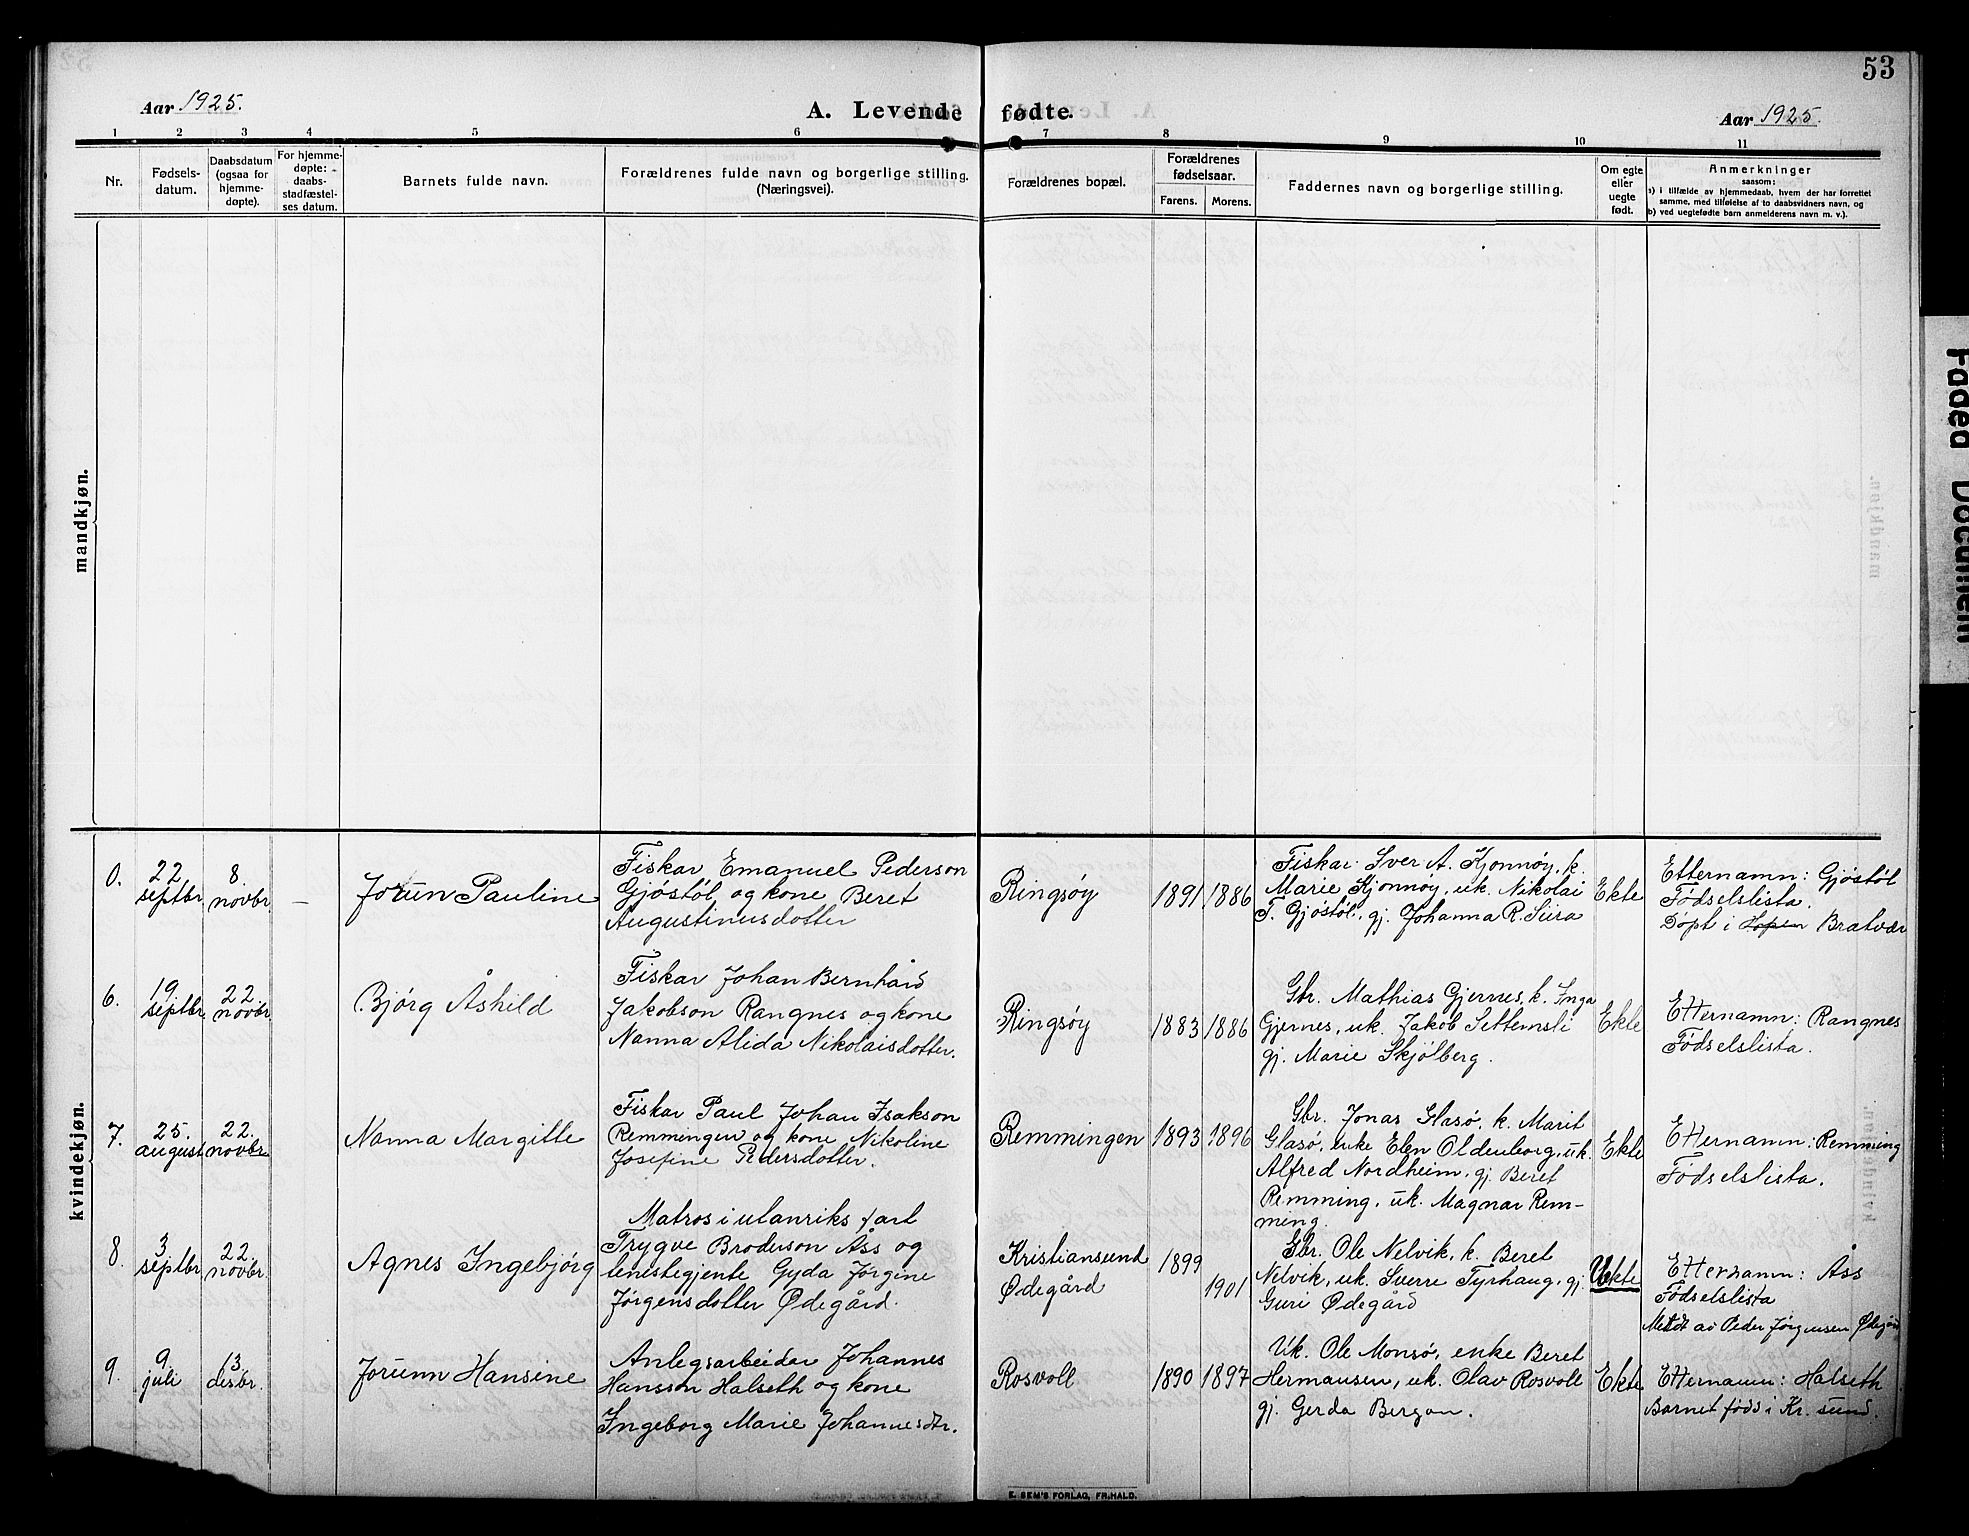 53
Aar 1925.
A. Levende fødte.
Aar 1925.
1 2 3 4 5 6 7 8 9 10 11
Nr.
Fødsels-
datum.
Daabsdatum
(ogsaa for
hjemme-
døpte).
For hjemme-
døpte:
daabs-
stadfæstel-
ses datum.
Barnets fulde navn.
Forældrenes fulde navn og borgerlige stilling.
(Næringsvei).
Forældrenes bopæl.
Forældrenes
fødselsaar.
Farens. Morens.
Faddernes navn og borgerlige stilling.
Om egte
eller
uegte
født.
Anmerkninger
saasom:
a) i tilfælde av hjemmedaab, hvem der har forrettet
samme, med tilføielse av to daabsvidners navn, og
b) ved uegtefødte barn anmelderens navn m. v.).
mandkjøn.
kvindekjøn.
0.
22
septbr
8.
novbr
–
Jorun Pauline
Fiskar Emanuel Pederson
Gjøstøl og kone Beret
Augustinusdotter
Ringsøy
1891
1886
Fiskar Iver A. Kjønnøy, k.
Marie Kjønnøy, uk. Nikolai
T. Gjøstøl, gj. Johanna R. Siira
Ekte
Etternamn: Gjøstøl
Fødselslista.
Døpt i Hopen Bratvær
6.
19
septbr.
22
novbr.
Bjørg Åshild
Fiskar Johan Bernhard
Jakobson Rangnes og kone
Nanna Alida Nikolaisdotter.
Ringsøy
1883
1886
Gbr. Mathias Gjernes, k. Inga
Gjernes, uk. Jakob Settemsli
gj. Marie Skjølberg.
Ekte
Etternamn: Rangnes
Fødselslista.
7.
25.
august
22.
novbr.
Nanna Margitte
Fiskar Paul Johan Isakson
Remmingen og kone Nikoline
Josefine Pedersdotter.
Remmingen
1893
1896
Gbr. Jonas Glasø, k. Marit
Glasø, enke Elen Oldenborg, uk.
Alfred Nordheim, gj. Beret
Remming, uk. Magnar Rem-
ming.
Ekte
Etternamn: Remming
Fødselslista.
8.
3
septbr.
22.
novbr.
Agnes Ingebjørg
Matros i utanriks fart
Trygve Broderson Åss og
tenestegjente Gyda Jørgine
Jørgensdotter Ødegård.
Kristiansund
Ødegård
1899
1901
Gbr. Ole Nelvik, k. Beret
Nelvik, uk. Sverre Tyrhaug, gj.
Guri Ødegård
Uekte
Etternamn: Åss
Fødselslista
Meldt av Peder Jørgensen Ødegård
9.
9
juli
13
desbr.
Jorunn Hansine
Anlegsarbeidar Johannes
Hansson Halseth og kone
Ingeborg Marie Johannesdtr.
Rosvoll
1890
1897
Uk. Ole Monsø, enke Beret
Hermansen, uk. Olav Rosvoll
gj. Gerda Bergan.
Ekte
Etternamn: Halseth
Barnet fødd i Kr. sund.
E. SEM'S FORLAG, FR.HALD.
Faded Document